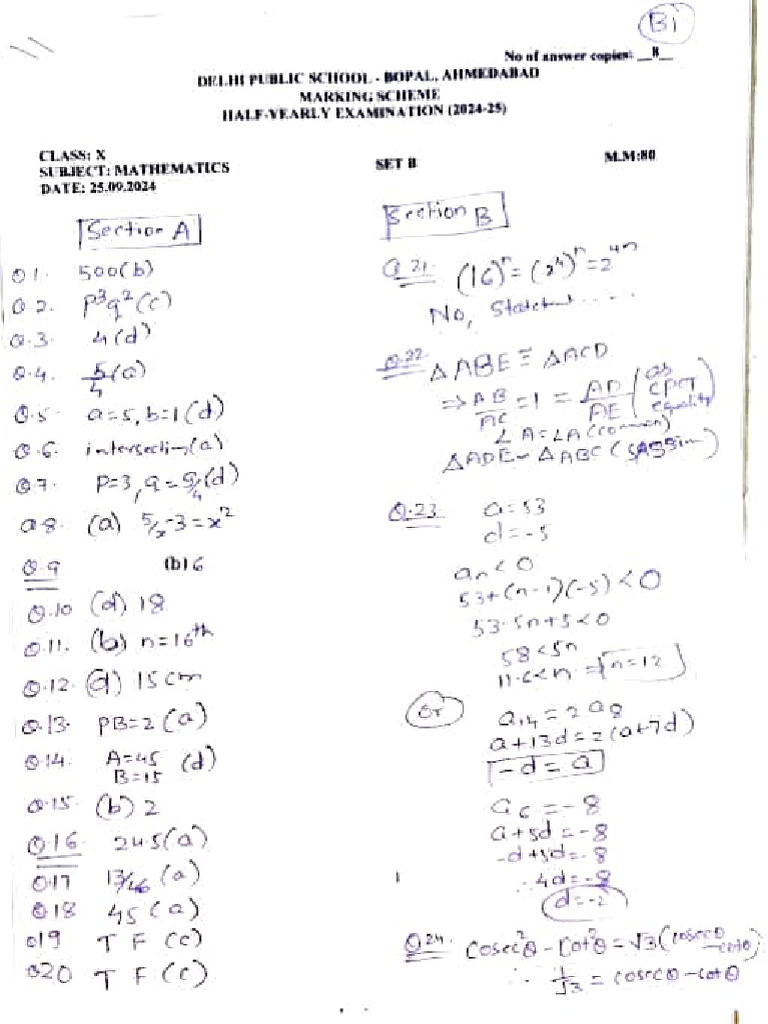 Bi
No of answer copies: __8__
DELHI PUBLIC SCHOOL - BOPAL, AHMEDABAD
MARKING SCHEME
HALF-YEARLY EXAMINATION (2024-25)
CLASS: X
SUBJECT: MATHEMATICS SET B M.M:80
DATE: 25.09.2024
Section A
Q 1. 500(b)
Q 2. p³q²(c)
Q.3. 4(d)
Q.4. 5/4(a)
Q.5. a=5, b=1(d)
Q.6. intersecting(a)
Q.7. P=3, q=9/4(d)
Q.8. (a) 5/x-3=x²
Q.9 (b) 6
Q.10 (d) 18
Q.11. (b) n=16th
Q.12. (d) 15cm
Q.13. PB=2(a)
Q.14. A=45 (d)
B=15
Q.15. (b) 2
Q.16. 24.5(a)
Q17 13/46(a)
Q18 45(a)
Q19 T F (c)
Q20 T F (c)
Section B
Q.21. (16)ⁿ=(2⁴)ⁿ=2⁴ⁿ
No, ....
Q.22. ΔABE≅ΔACD
⇒AB/AC=1=AD/AE (as CPCT equality)
∠A=∠A(common)
ΔADE~ΔABC(SAS Sim)
Q.23. a=53
d=-5
an<0
53+(n-1)(-5)<0
53-5n+5<0
58<5n
11.6<n ⇒ n=12
Or a14=2a8
a+13d=2(a+7d)
-d=a
a6=-8
a+5d=-8
-d+5d=-8
∴4d=-8
d=-2
Q.24. cosec²θ-cot²θ=√3(cosecθ-cotθ)
∴ 1/√3=cosecθ-cotθ